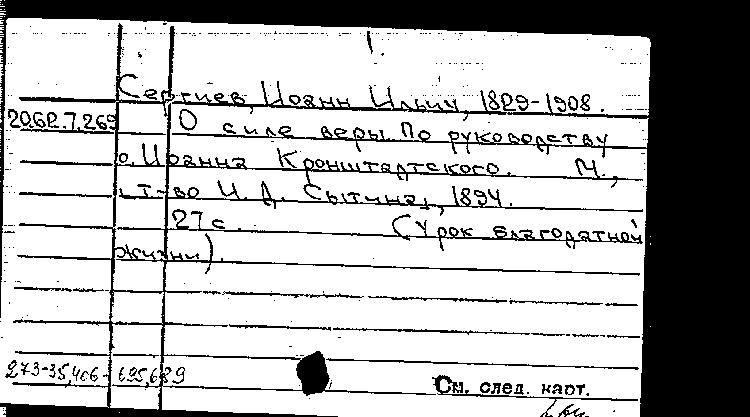 1.
Сергиев, Иоанн Ильич, 1829-1908.
20.62.7.269 О силе веры. По руководству
о. Иоанна Кронштадтского. М.,
т-во И. Д. Сытина, 1894.
27 с. (Урок благодатной
жизни).
273-35,406- 695,689
См. след. карт.